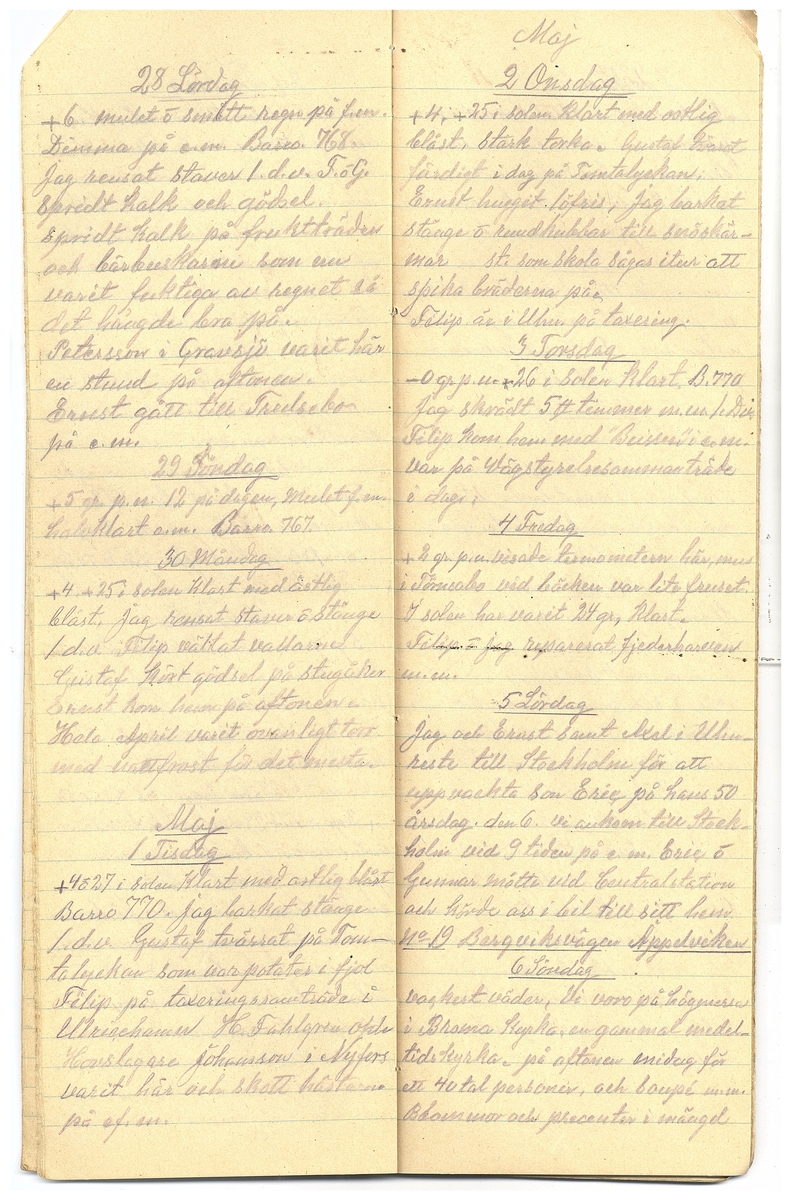 28 Lördag
+6 mulet ö smått regn på f.m.
Dimma på e.m. Barro. 768.
Jag rensat staver 1.d.v. F. ö G.
Spridt kalk och gödsel.
Spridt kalk på fruktträden
och bärbuskarne som nu
varit fuktiga av regnet så
det hängde bra på.
Petersson i Gravsjö varit här
en stund på aftonen.
Ernst gått till Fredsebo
på e.m.
29 Söndag
+5 gr p.n. 12 på dagen, Mulet f.m.
halvklart e.m. Barro. 767.
30 Måndag
+4. +25 i solen Klart med östlig
blåst, Jag rensat staver ö stänge
1.d.v. Felip vältat vallarne
Gustaf kört gödsel på stugåker
Ernst kom hem på aftonen.
Hela April varit ovanligt torr
med nattfrost för det mesta.
Maj
1 Tisdag
+4 ö 27 i solen Klart med ostlig blåst
Barro 770. jag barkat stänge
1.d.v. Gustaf tvärrat på Tom-
talyckan som var potater i fjol
Felip på taxeringssamträde i
Ulricehamn H. Fahlgren och
Hovslagare Johansson i Nyfors
varit här och skott hästarne
på ef.m.
Maj
2 Onsdag
+4, +25 i solen. Klart med ostlig
blåst, stark torka. Gustaf tvärrat
färdigt i dag på Tomtalyckan,
Ernst huggit löfris, jag barkat
stänge ö rundkubbar till snöskär-
mar st. som skola sågas itur att
spika bräderna på.
Felip är i Uhn. på taxering.
3 Torsdag
-0 gr p.n. +26 i solen Klart, B. 770
Jag skrädt 5 timmer m.m. 1. Div
Felip kom hem med "Beissen" i e.m.
var på Vägstyrelsesammanträde
i dag.
4 Fredag
+2 gr p.n. visade termometern här, men
i Törnsabo vid bäcken var lite fruset.
I solen har varit 24 gr, Klart.
Felip ö jag reparerat fjederharven
m.m.
5 Lördag
Jag och Ernst samt Axel i Uhn-
reste till Stockholm för att
uppvackta son Eric på hans 50
årsdag den 6. vi ankom till Stock-
holm vid 9 tiden på e.m. Eric ö
Gunnar mötte vid Centralstation
och körde oss i bil till sitt hem
No 19 Bergviksvägen Äppelviken
6 Söndag
vackert väder, Vi voro på högmessa
i Broma kyrka, en gammal medel-
tidskyrka. på aftonen midag för
ett 40 tal personer, och soupé m.m.
Blommor och presenter i mängd